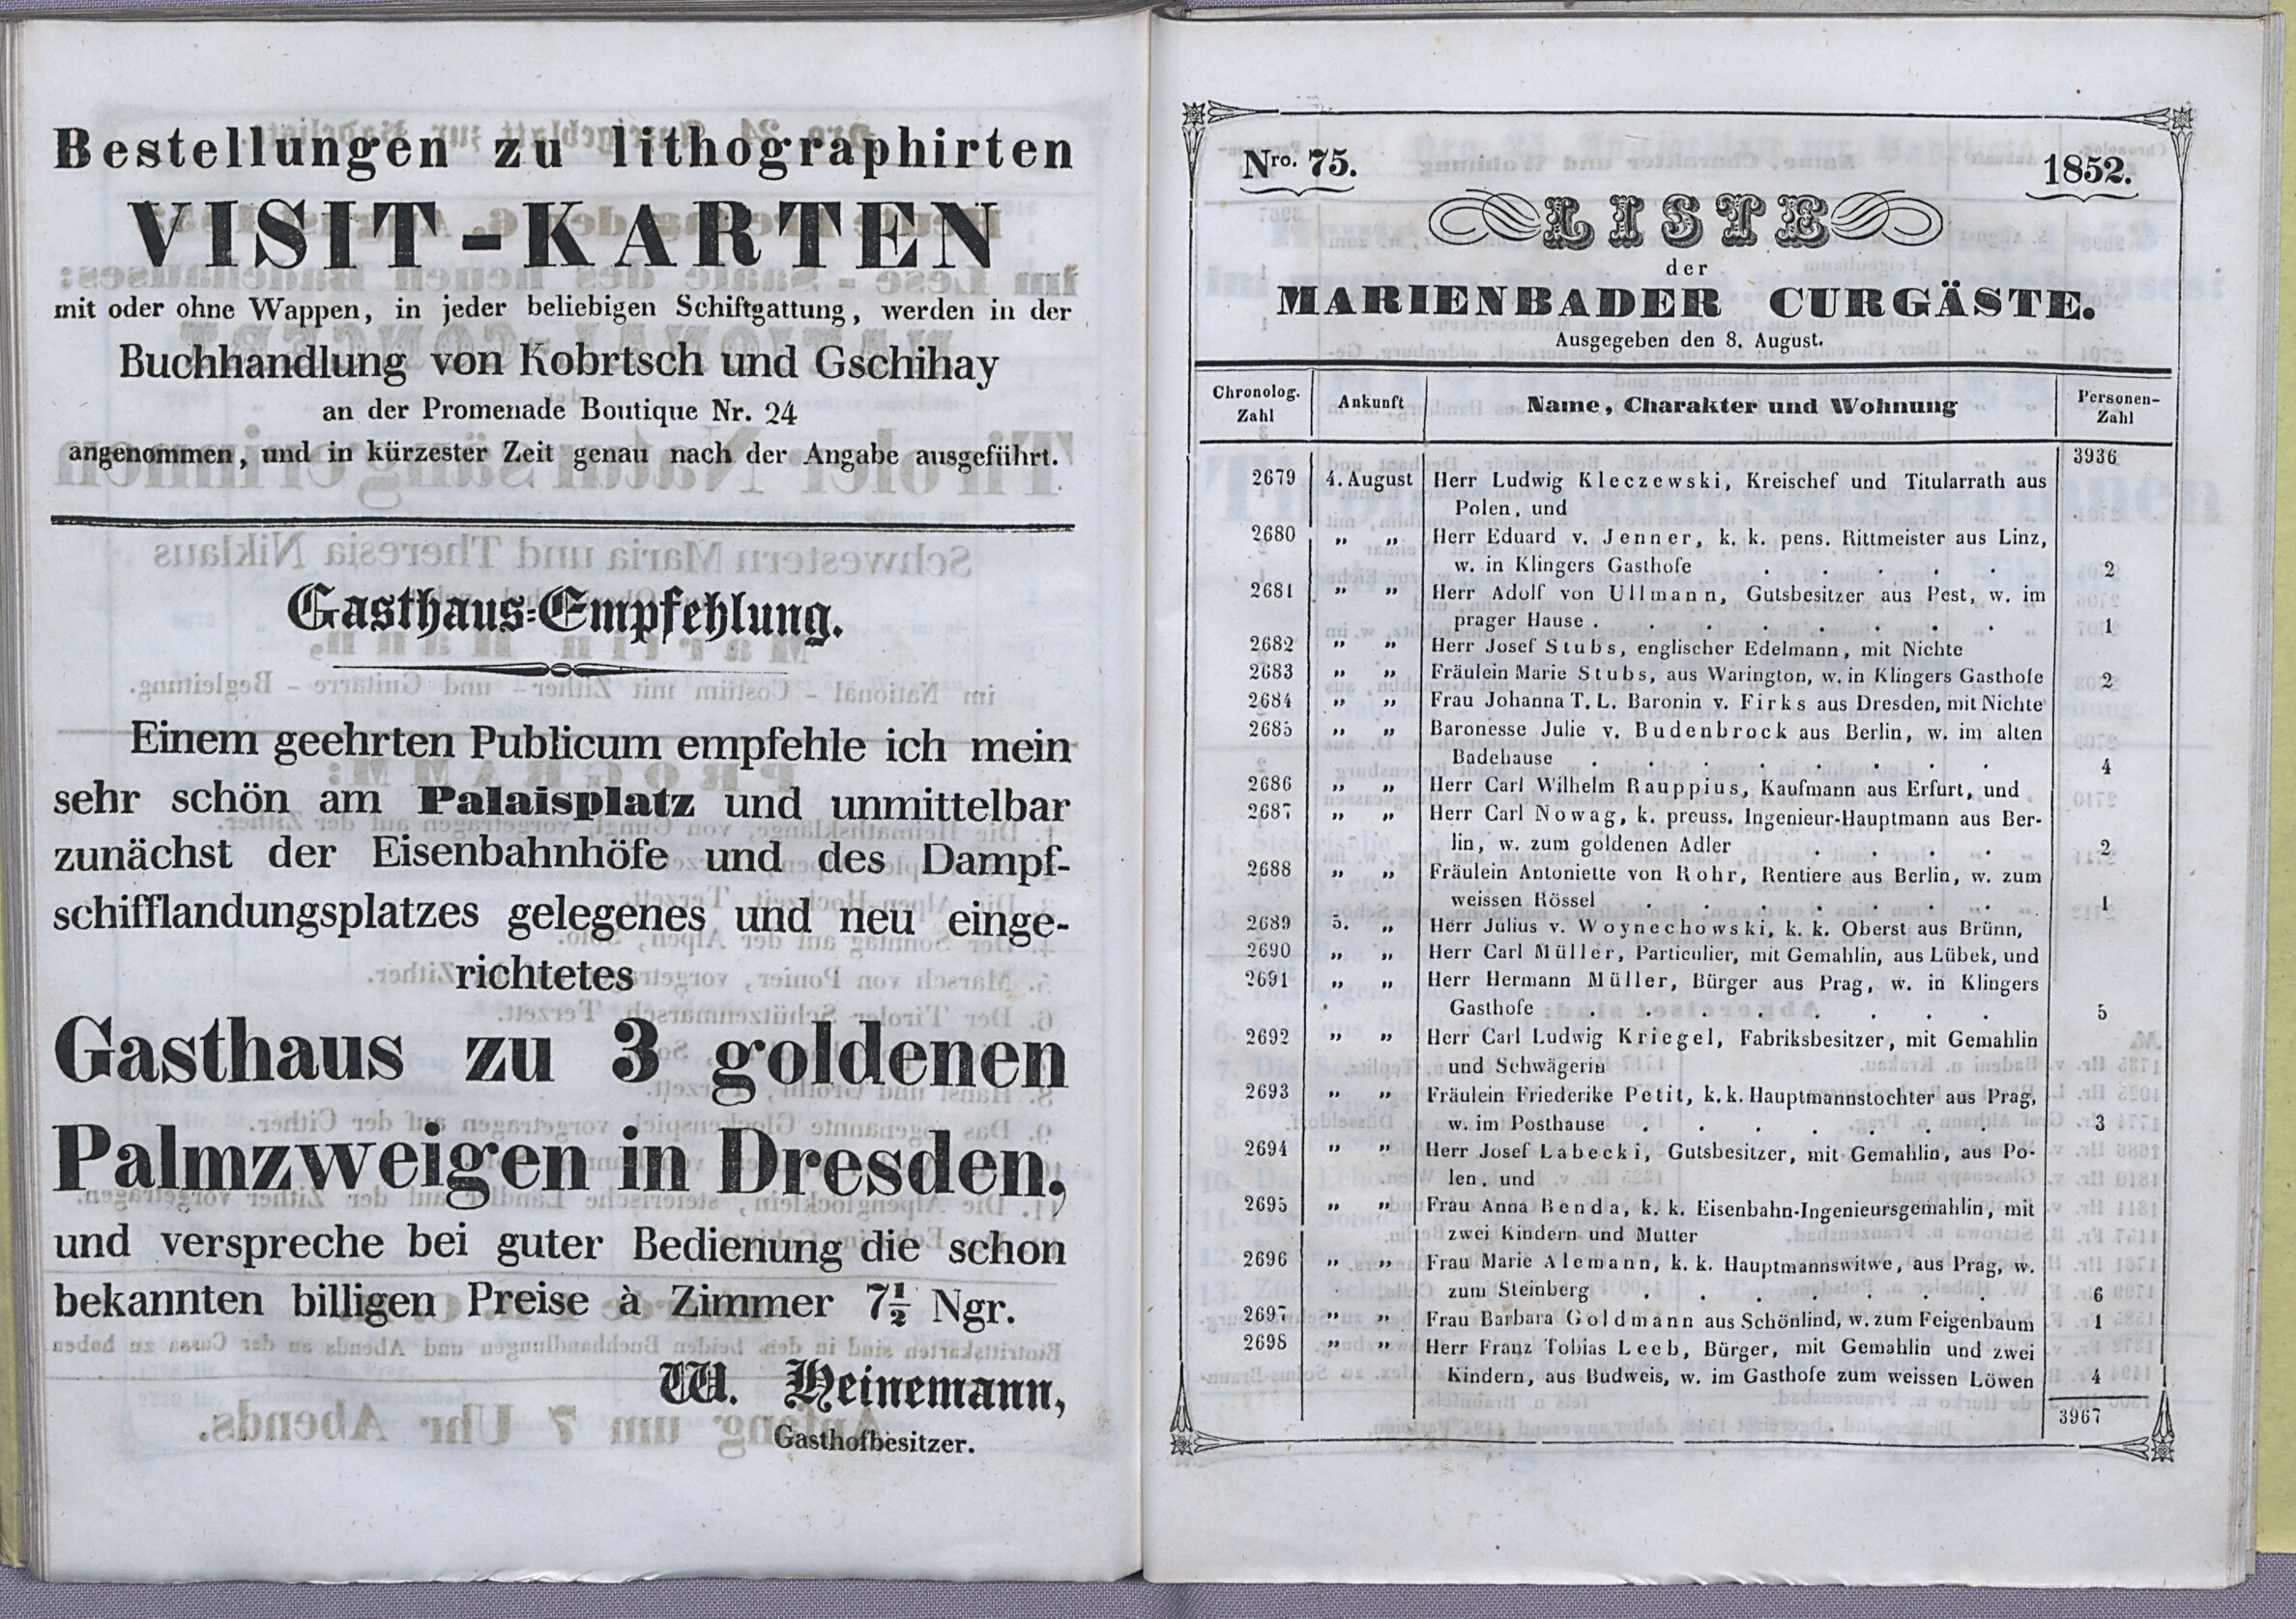 Bestellungen zu lithographirten
VISIT-KARTEN
mit oder ohne Wappen, in jeder beliebigen Schiftgattung, werden in der
Buchhandlung von Kobrtsch und Gschihay
an der Promenade Boutique Nr. 24
angenommen, und in kürzester Zeit genau nach der Angabe ausgeführt.
Gasthaus-Empfehlung.
Einem geehrten Publicum empfehle ich mein
sehr schön am Palaisplatz und unmittelbar
zunächst der Eisenbahnhöfe und des Dampf-
schifflandungsplatzes gelegenes und neu einge-
richtetes
Gasthaus zu 3 goldenen
Palmzweigen in Dresden,
und verspreche bei guter Bedienung die schon
bekannten billigen Preise à Zimmer 7½ Ngr.
W. Heinemann,
Gasthofbesitzer.
Nro. 75. 1852.
LISTE
der
MARIENBADER CURGÄSTE.
Ausgegeben den 8. August.
Chronolog. Zahl | Ankunft | Name, Charakter und Wohnung | Personen-Zahl
3936
2679 4. August Herr Ludwig Kleczewski, Kreischef und Titularrath aus
Polen, und
2680 „ „ Herr Eduard v. Jenner, k. k. pens. Rittmeister aus Linz,
w. in Klingers Gasthofe . . . . . 2
2681 „ „ Herr Adolf von Ullmann, Gutsbesitzer aus Pest, w. im
prager Hause . . . . . . . . 1
2682 „ „ Herr Josef Stubs, englischer Edelmann, mit Nichte
2683 „ „ Fräulein Marie Stubs, aus Warington, w. in Klingers Gasthofe 2
2684 „ „ Frau Johanna T. L. Baronin v. Firks aus Dresden, mit Nichte
2685 „ „ Baronesse Julie v. Budenbrock aus Berlin, w. im alten
Badehause . . . . . . . . 4
2686 „ „ Herr Carl Wilhelm Rauppius, Kaufmann aus Erfurt, und
2687 „ „ Herr Carl Nowag, k. preuss. Ingenieur-Hauptmann aus Ber-
lin, w. zum goldenen Adler . . . . 2
2688 „ „ Fräulein Antoniette von Rohr, Rentiere aus Berlin, w. zum
weissen Rössel . . . . . . . 1
2689 5. „ Herr Julius v. Woynechowski, k. k. Oberst aus Brünn,
2690 „ „ Herr Carl Müller, Particulier, mit Gemahlin, aus Lübek, und
2691 „ „ Herr Hermann Müller, Bürger aus Prag, w. in Klingers
Gasthofe . . . . . . . . 5
2692 „ „ Herr Carl Ludwig Kriegel, Fabriksbesitzer, mit Gemahlin
und Schwägerin
2693 „ „ Fräulein Friederike Petit, k. k. Hauptmannstochter aus Prag,
w. im Posthause . . . . . . . 3
2694 „ „ Herr Josef Labecki, Gutsbesitzer, mit Gemahlin, aus Po-
len, und
2695 „ „ Frau Anna Benda, k. k. Eisenbahn-Ingenieursgemahlin, mit
zwei Kindern und Mutter
2696 „ „ Frau Marie Alemann, k. k. Hauptmannswitwe, aus Prag, w.
zum Steinberg . . . . . . . 6
2697 „ „ Frau Barbara Goldmann aus Schönlind, w. zum Feigenbaum 1
2698 „ „ Herr Franz Tobias Leeb, Bürger, mit Gemahlin und zwei
Kindern, aus Budweis, w. im Gasthofe zum weissen Löwen 4
3967